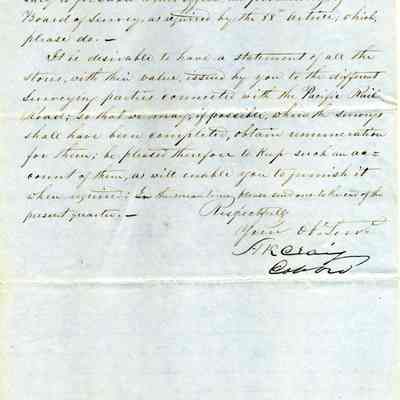 Board of Survey, as required by the 88th Article, which,
please do. —
It is desirable to have a statement of all the
stores, with their value, issued by you to the different
Surveying parties connected with the Pacific Rail
Road; so that we may, if possible, when the surveys
shall have been completed, obtain remuneration
for them; be pleased therefore to keep such an ac=
count of them, as will enable you to furnish it
when required; In the mean time, please send one to the end of the
present quarter. —
Respectfully
Your Obt Servt
A K Craig